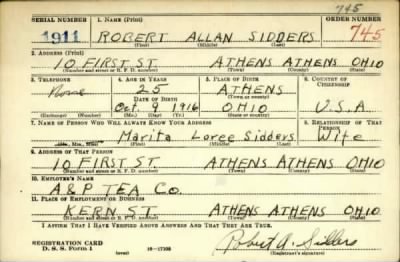 745
SERIAL NUMBER 1. NAME (Print) ORDER NUMBER
1911 ROBERT ALLAN SIDDERS 745
(First) (Middle) (Last)
2. ADDRESS (Print)
10 FIRST ST. ATHENS ATHENS OHIO
(Number and street or R. F. D. number) (Town) (County) (State)
3. TELEPHONE 4. AGE IN YEARS 5. PLACE OF BIRTH 6. COUNTRY OF CITIZENSHIP
None 25 ATHENS
(Town or county)
DATE OF BIRTH
Oct. 9 1916 OHIO U.S.A
(Exchange) (Number) (Mo.) (Day) (Yr.) (State or country)
7. NAME OF PERSON WHO WILL ALWAYS KNOW YOUR ADDRESS 8. RELATIONSHIP OF THAT PERSON
Marita Loree Sidders Wife
(Mr., Mrs., Miss) (First) (Middle) (Last)
9. ADDRESS OF THAT PERSON
10 FIRST ST. ATHENS ATHENS OHIO
(Number and street or R. F. D. number) (Town) (County) (State)
10. EMPLOYER'S NAME
A&P TEA Co.
11. PLACE OF EMPLOYMENT OR BUSINESS
KERN ST. ATHENS ATHENS OHIO
(Number and street or R. F. D. number) (Town) (County) (State)
I AFFIRM THAT I HAVE VERIFIED ABOVE ANSWERS AND THAT THEY ARE TRUE.
REGISTRATION CARD
D. S. S. Form 1 (over) 16—17105 Robert A. Sidders